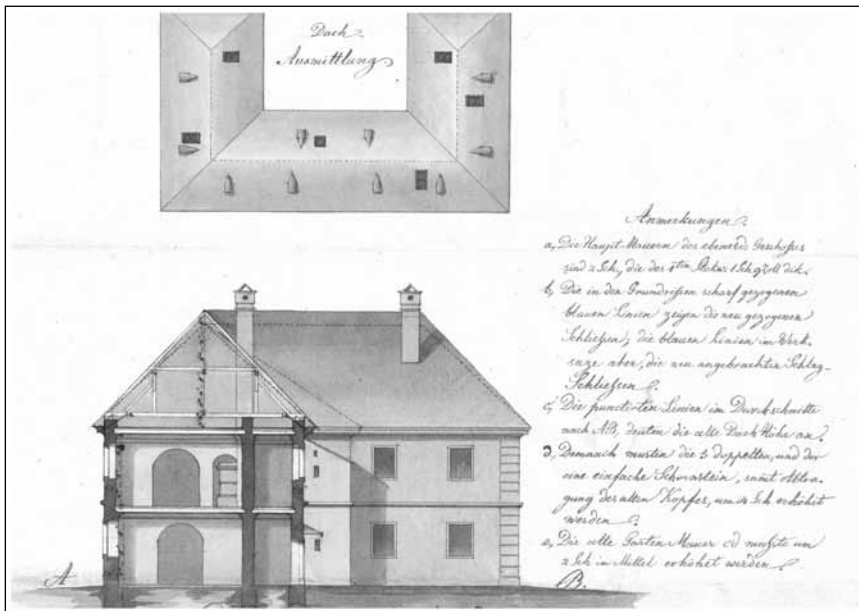 Dach
Ausmittlung
Anmerkungen.
a, Die Haupt-Mauern des ebenerd. Geschoßes
sind 2 Sch, die des 1ten Stockes 1 Sch 9 Zoll dik.
b, Die in den Grundrißen scharf gezogenen
blauen Linien zeigen die neu gezogenen
Schließen, die blauen Linien im Werk-
satze aber, die neu angebrachten Schlag-
Schließen.
c, Die punctirten Linien im Durchschnitte
nach AB, deuten die alte Dach Höhe an.
d, Demnach musten die 5 doppelten, und der
eine einfache Schornstein, samt Abtra-
gung der alten Köpfer, um Sch erhöhet
werden.
e, Die alte Garten Mauer cd mußte um
2 Sch im Mittel erhöhet werden.
A
B.